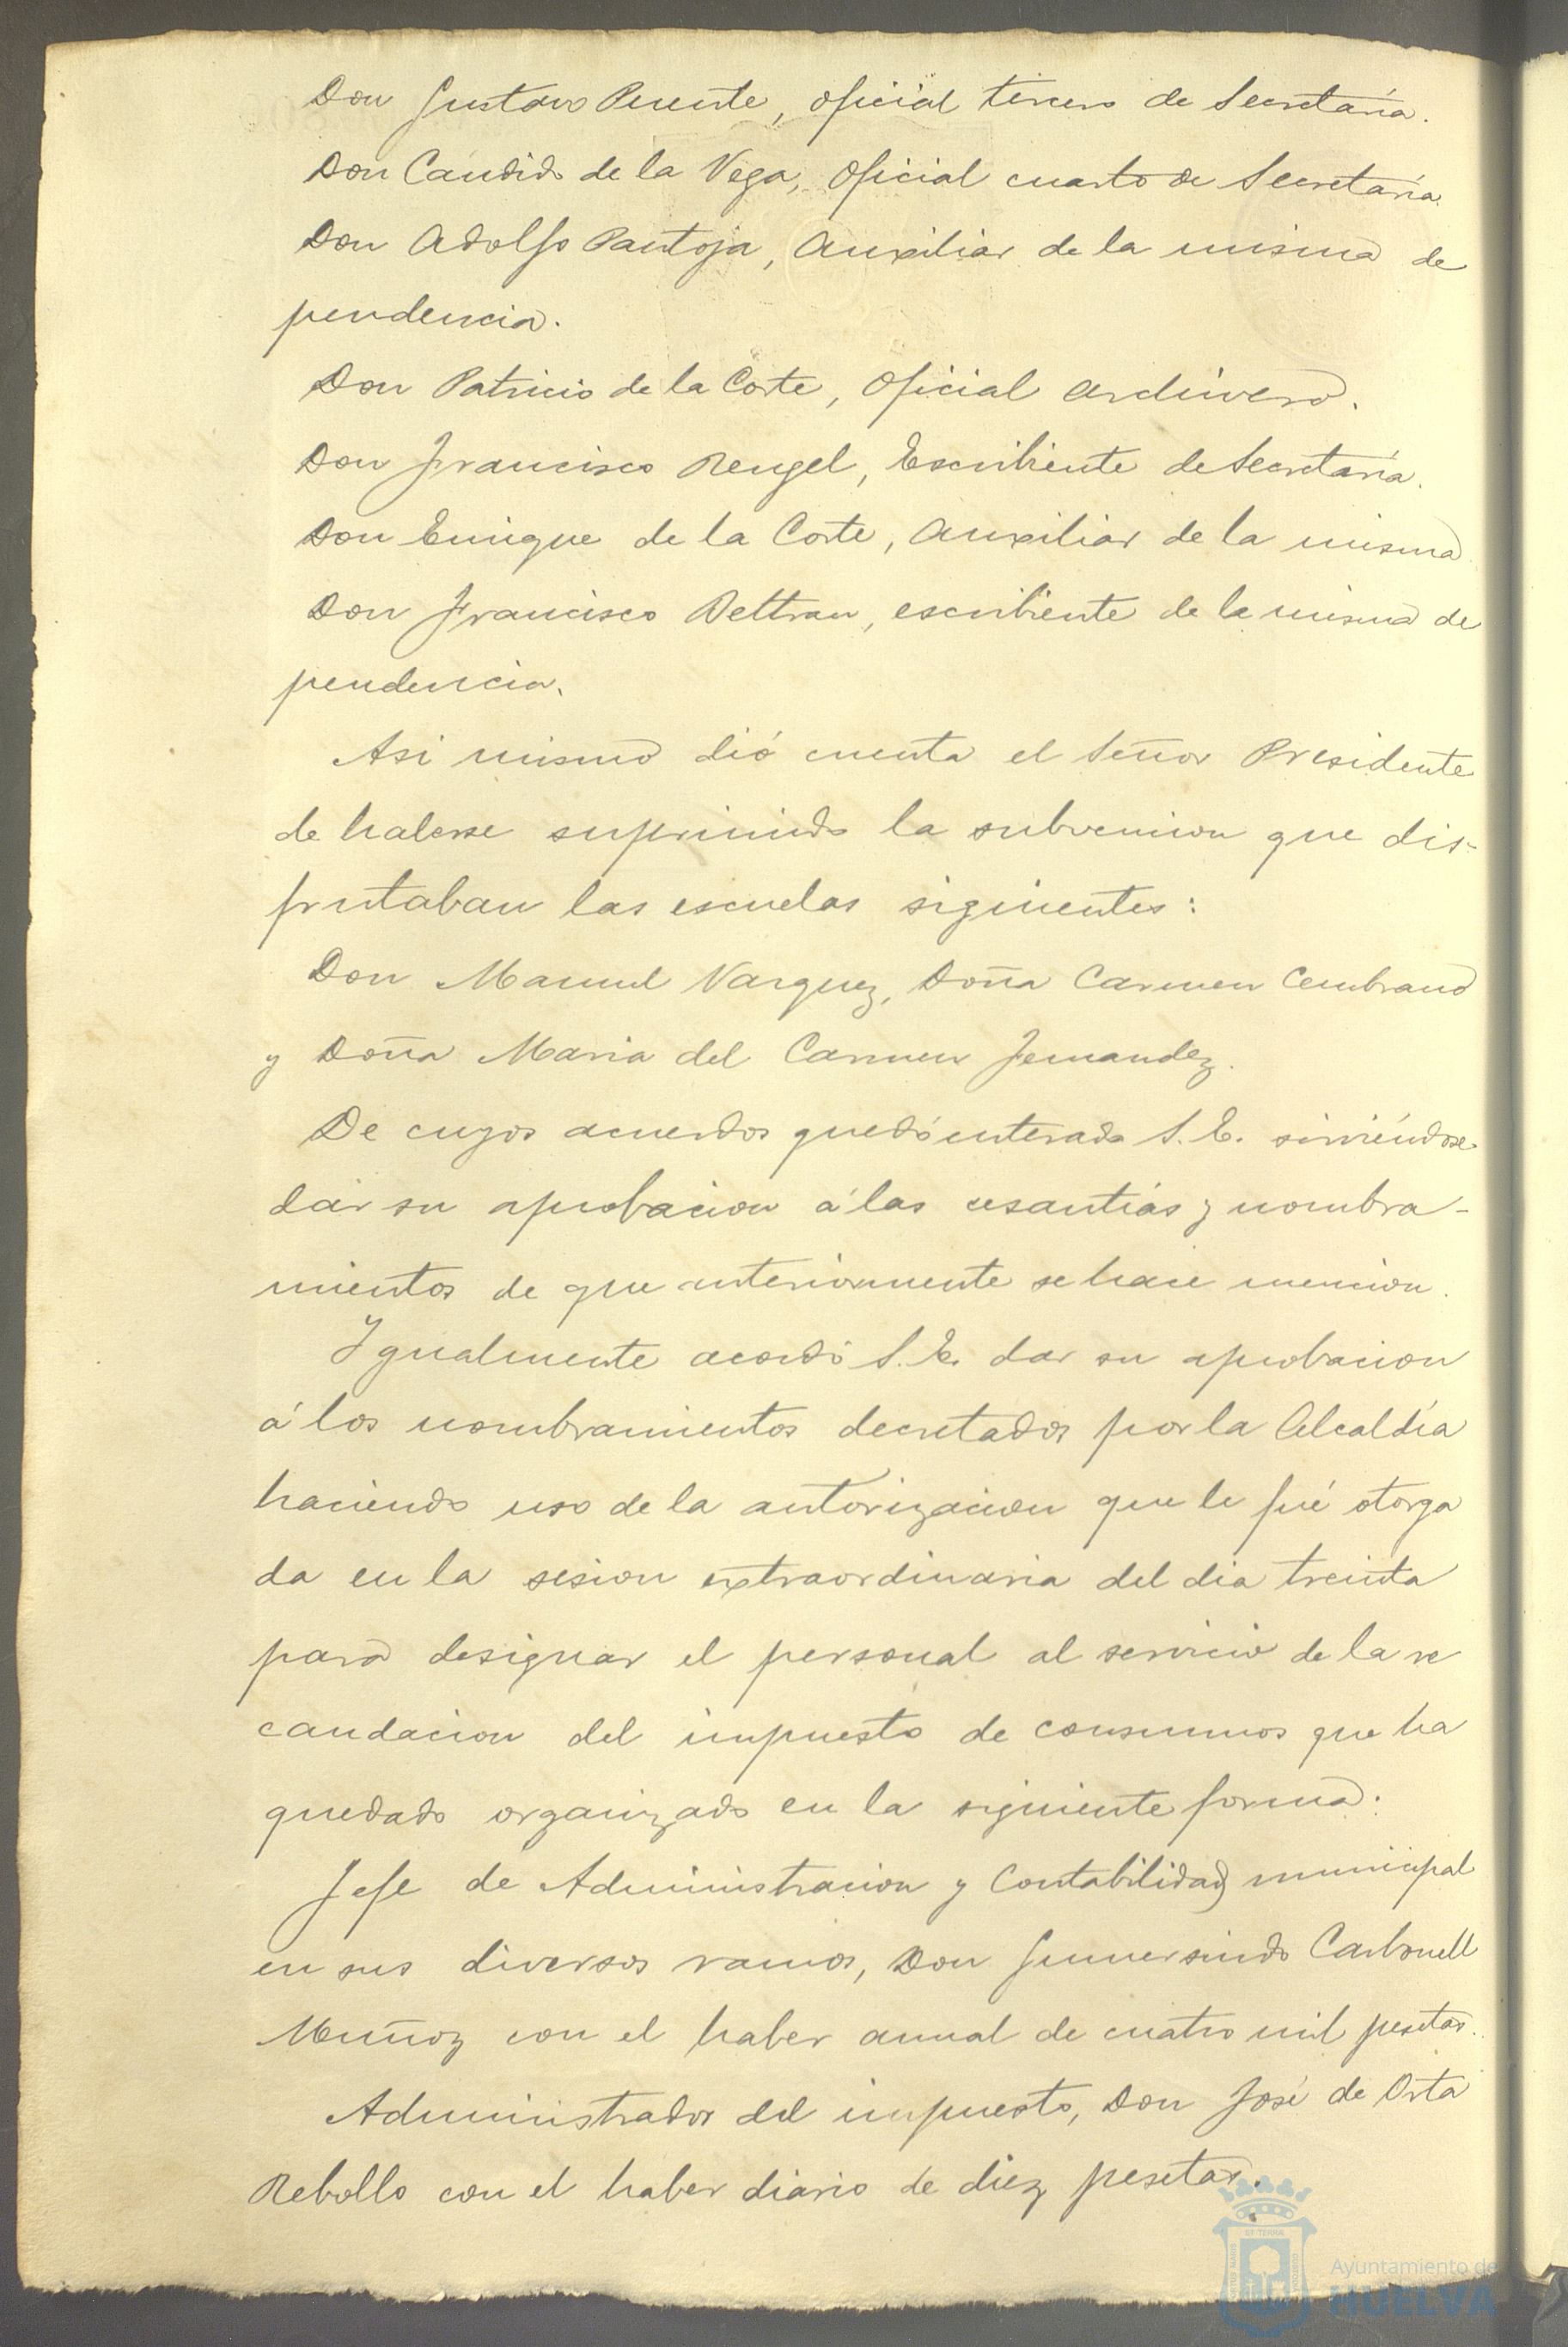 Don Gustavo Puente, oficial tercero de Secretaría.
Don Cándido de la Vega, Oficial cuarto de Secretaría
Don Adolfo Pantoja, Auxiliar de la misma de
pendencia.
Don Patricio de la Corte, Oficial Archivero.
Don Francisco Rengel, Escribiente de Secretaría.
Don Enrique de la Corte, Auxiliar de la misma
Don Francisco Beltran, escribiente de la misma de
pendencia.
Asi mismo dió cuenta el Señor Presidente
de haberse suprimido la subvencion que dis-
frutaban las escuelas siguientes:
Don Manuel Vazquez, Doña Carmen Cembrano
y Doña Maria del Carmen Fernandez.
De cuyos acuerdos quedó enterado S. E. sirviéndose
dar su aprobacion á las cesantías y nombra-
mientos de que anteriormente se hace mencion.
Igualmente acordó S. E. dar su aprobacion
á los nombramientos decretados por la Alcaldía
haciendo uso de la autorizacion que le fué otorga
da en la sesion extraordinaria del dia treinta
para designar el personal al servicio de la re
caudacion del impuesto de consumos que ha
quedado organizado en la siguiente forma:
Jefe de Administracion y Contabilidad municipal
en sus diversos ramos, Don Gumersindo Carbonell
Muñoz con el haber anual de cuatro mil pesetas.
Administrador del impuesto, Don José de Orta
Rebollo con el haber diario de diez pesetas.
Ayuntamiento de
HUELVA